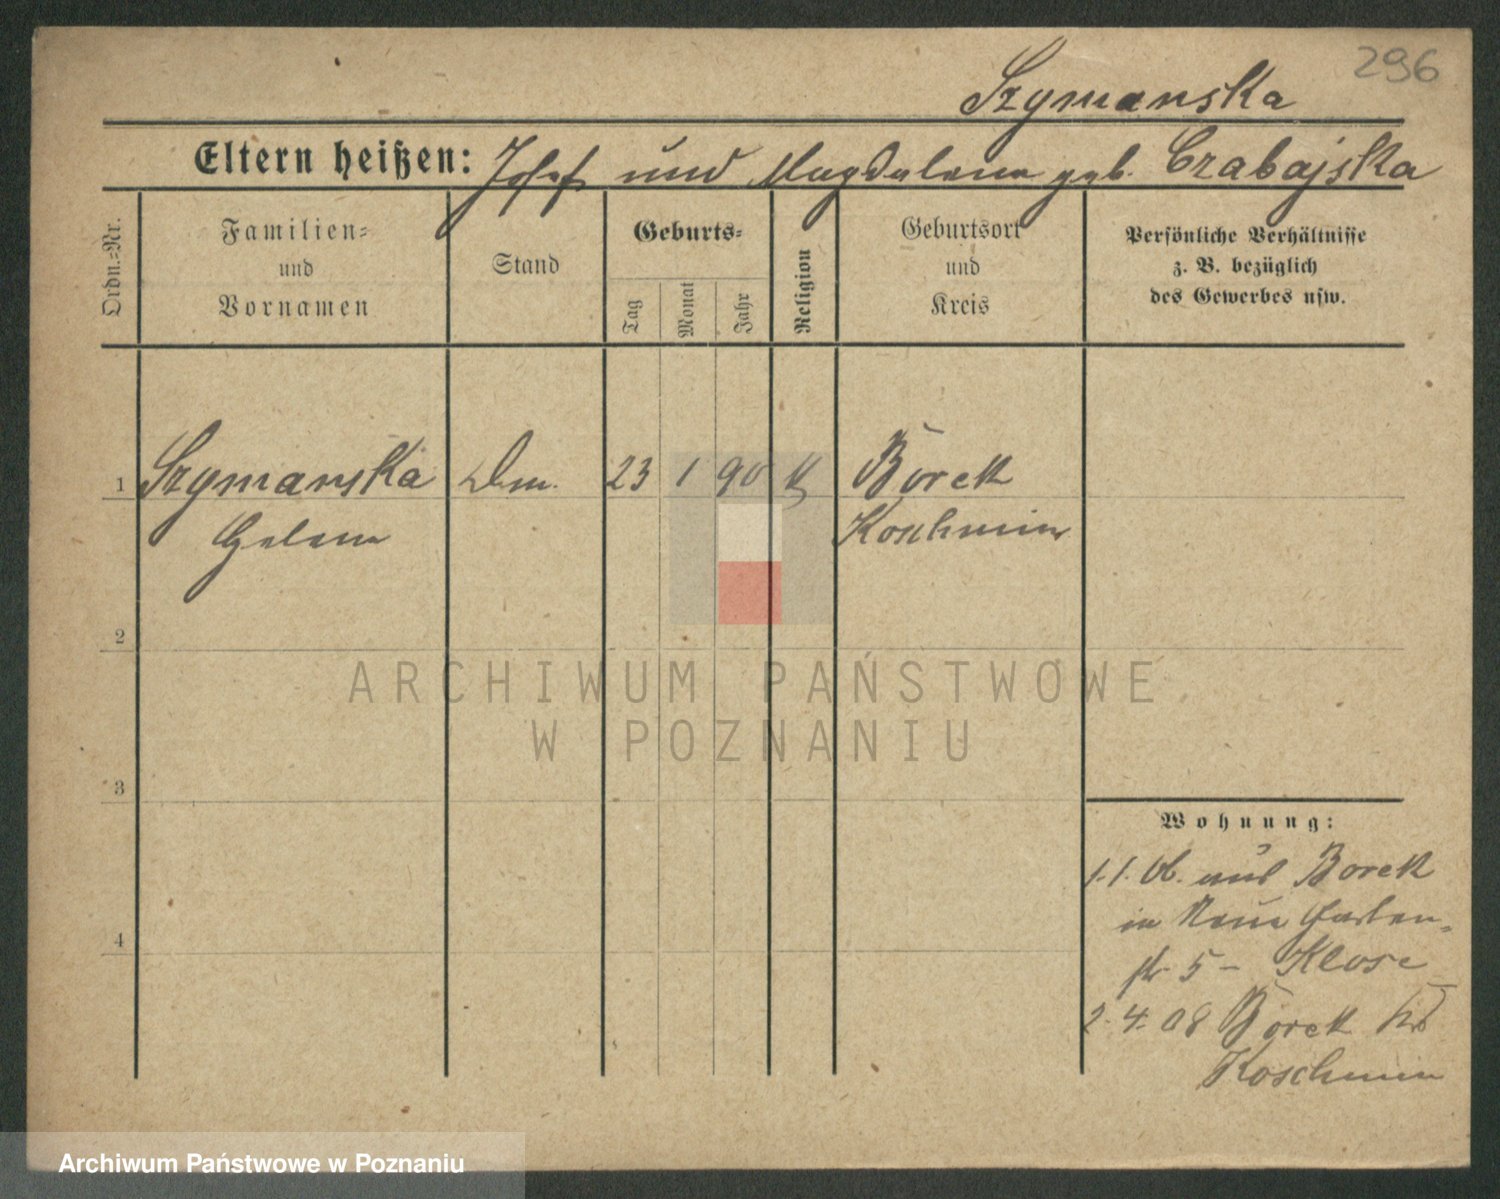 296
Szymanska
Eltern heißen: Josef und Magdalena geb. Czabajska
Ordn.-Nr.
Familien-
und
Vornamen
Stand
Geburts-
Tag
Monat
Jahr
Religion
Geburtsort
und
Kreis
Persönliche Verhältnisse
z. B. bezüglich
des Gewerbes usw.
1 Szymanska Dm. 23 1 90 k Borek
Helene Koschmin
2
3
4
ARCHIWUM PAŃSTWOWE
W POZNANIU
Wohnung:
1.1. 06. aus Borek
in Neue Garten-
str 5 - Klose
2.4.08 Borek Krs
Koschmin
Archiwum Państwowe w Poznaniu